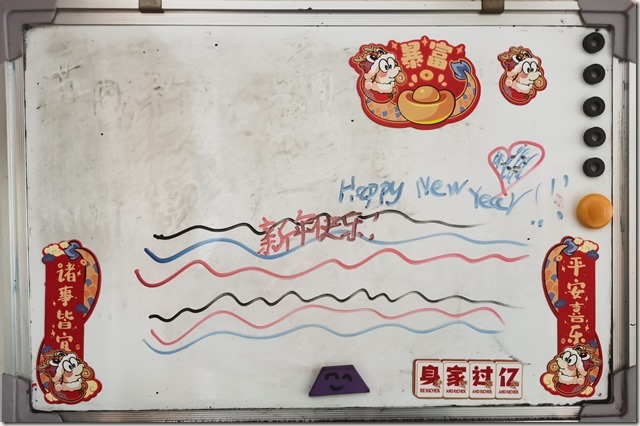 暴富
Happy New Year!!
新年快乐!
诸事皆宜
平安喜乐
身家过亿